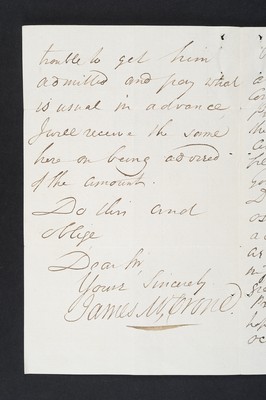 trouble to get him
admitted and pay what
is usual in advance.
I will receive the same
here on being advised
of the amount.
Do this and
Oblige
Dear Sir,
Yours Sincerely
James